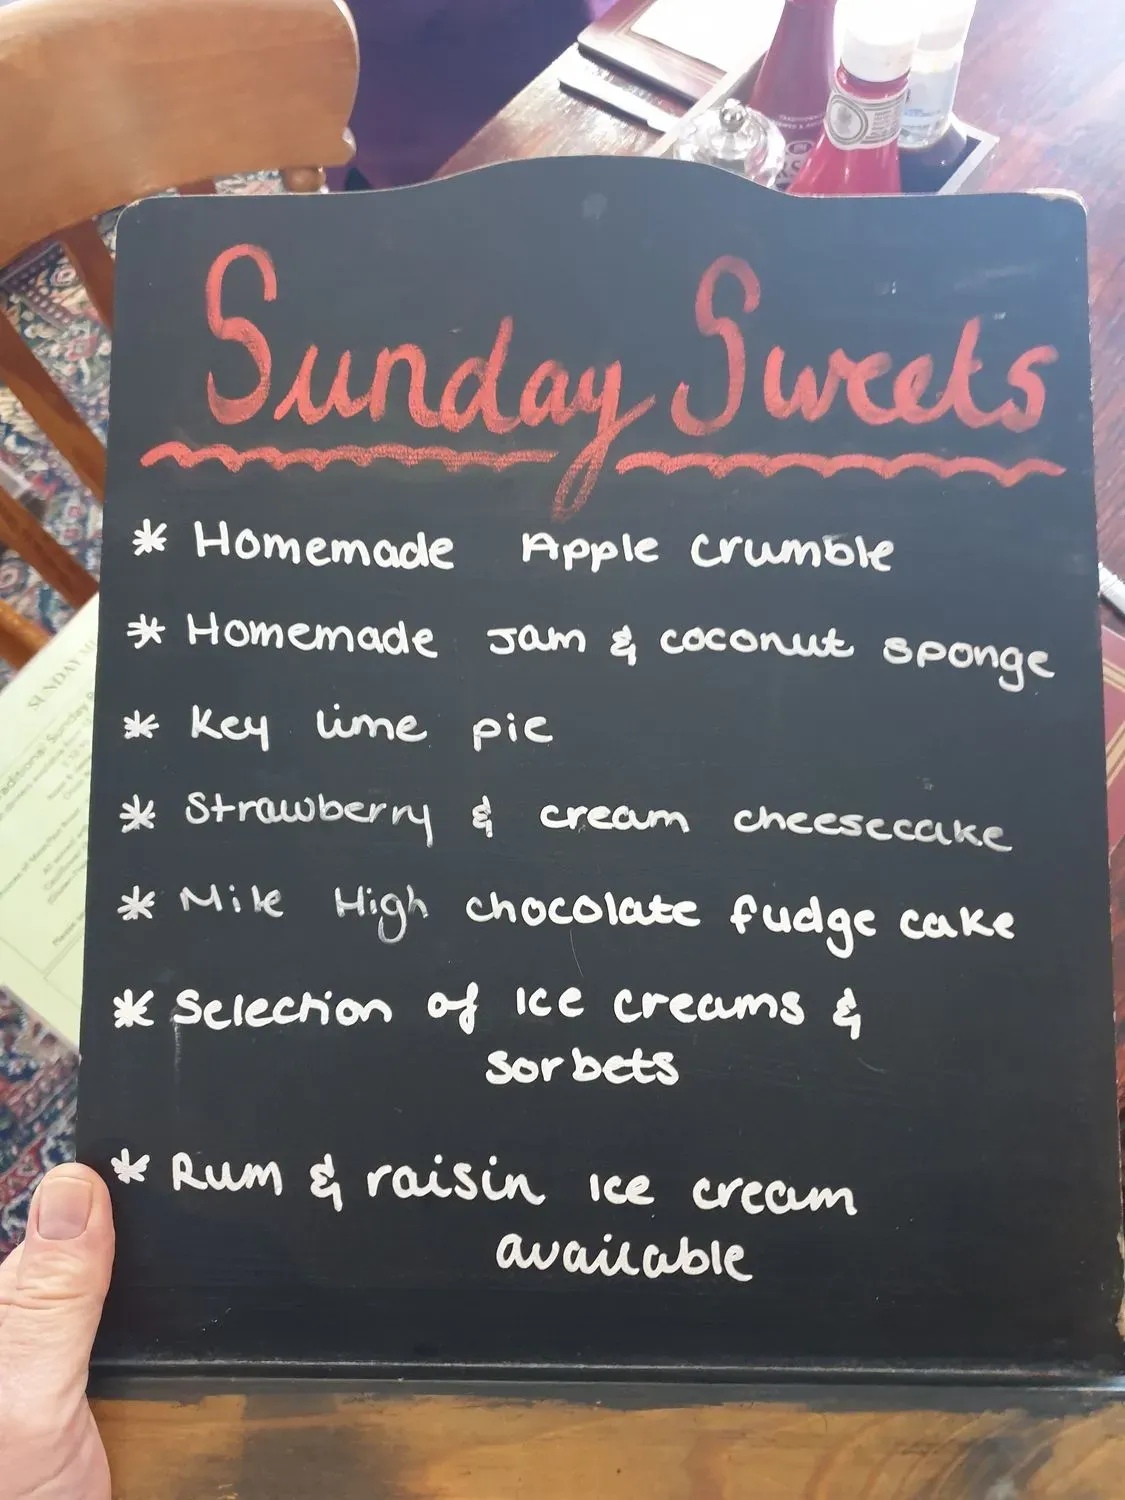 Sunday Sweets
* Homemade Apple crumble
* Homemade Jam & coconut sponge
* Key lime pie
* Strawberry & cream cheesecake
* Mile High chocolate fudge cake
* Selection of Ice creams &
sorbets
* Rum & raisin Ice cream
available
SUNDAY